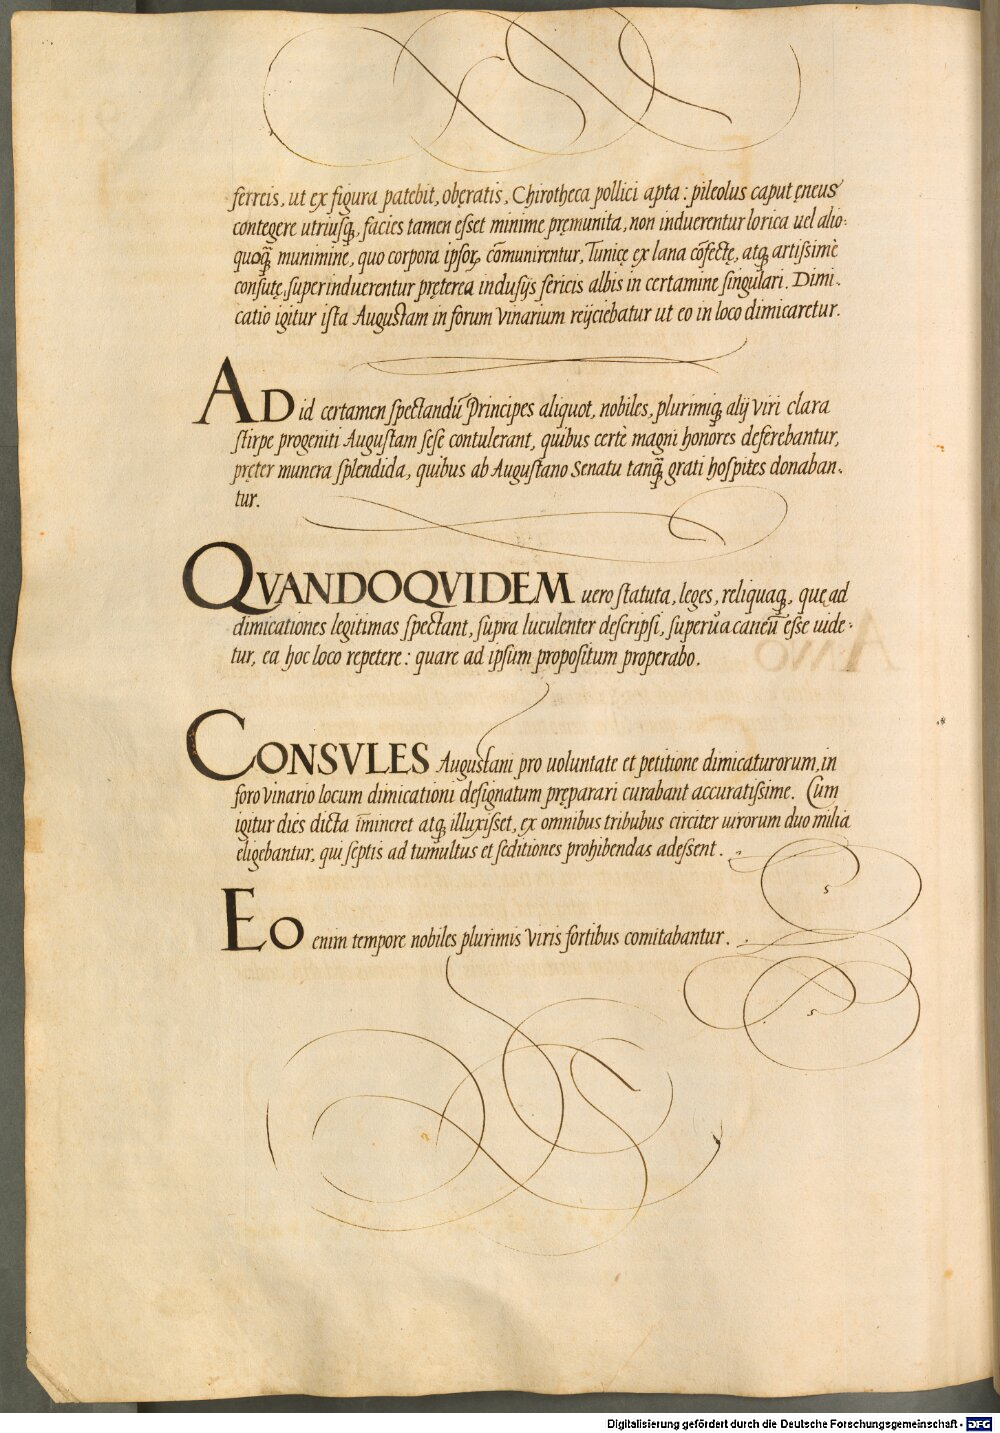 ferreis, ut ex figura patebit, obęratis, Chirotheca pollici apta: pileolus caput ęneus
contegere utriusq́, facies tamen esset minime pręmunita, non induerentur lorica uel alio-
quoq̃ munimine, quo corpora ipsoꝝ cōmunirentur, Tunicę ex lana cōfectę, atq́ artissimè
consutę, superinduerentur pręterea indusijs sericis albis in certamine singulari. Dimi-
catio igitur ista Augustam in forum Vinarium reijciebatur ut eo in loco dimicaretur.
AD id certamen spectandũ Principes aliquot, nobiles, plurimiq́ alij Viri clara
stirpe progeniti Augustam sese contulerant, quibus certè magni honores deferebantur,
pręter munera splendida, quibus ab Augustano Senatu tanq̃ grati hospites donaban-
tur.
QVANDOQVIDEM uero statuta, leges, reliquaq́, quę ad
dimicationes legitimas spectant, supra luculenter descripsi, superua caneũ esse uide-
tur, ea hoc loco repetere: quare ad ipsum propositum properabo.
CONSVLES Augustani pro uoluntate et petitione dimicaturorum, in
foro Vinario locum dimicationi designatum pręparari curabant accuratissime. Cum
igitur dies dicta īmineret atq́ illuxisset, ex omnibus tribubus circiter uirorum duo milia
eligebantur, qui septis ad tumultus et seditiones prohibendas adessent.
EO enim tempore nobiles plurimis Viris fortibus comitabantur.
Digitalisierung gefördert durch die Deutsche Forschungsgemeinschaft - DFG